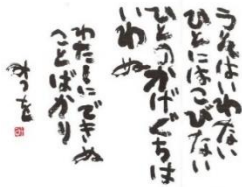 うそはいわない
ひとにはこびない
ひとのかげぐちは
いわぬ
わたしにできぬ
ことばかり
みつを